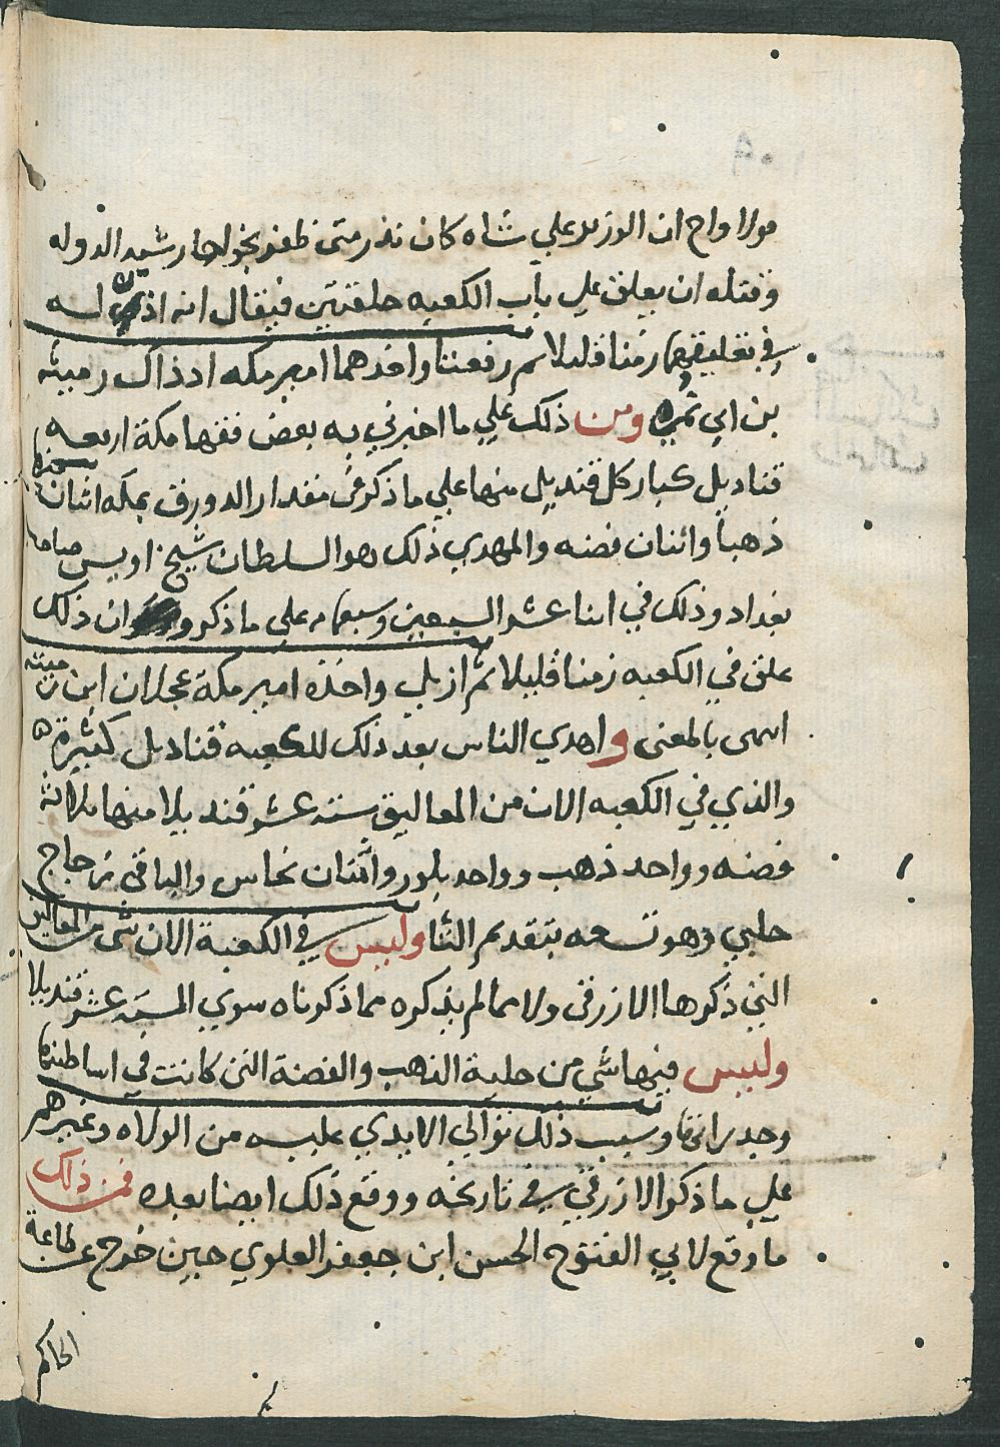 مولا واح ان الوزير علي شاه كان نذر متى ظفر بخواجا رشيد الدوله
وقتله ان يعلق علي باب الكعبه حلقتين فيقال انه اذن له
في تعليقهما زمنا قليلا ثم رفعتا واخذهما امير مكه اذ ذاك رميثه
بن ابي نمي ومن ذلك علي ما اخبرني به بعض فقها مكة اربعه
قناديل كبار كل قنديل منها علي ما ذكر في مقدار الدورق بمكه اثنان
ذهبا واثنان فضه والمهدي ذلك هو السلطان شيخ اويس صاحب
بغداد وذلك في اثنا عشر السبعين وسبعمايه علي ما ذكر وان ذلك
علق في الكعبه زمنا قليلا ثم ازيل واخذه امير مكة عجلان ابن رميثه
انتهى بالمعنى واهدي الناس بعد ذلك للكعبه قناديل كثيرة
والذي في الكعبه الان من المعاليق ستة عشر قنديلا منها ثلاثة
فضه وواحد ذهب وواحد بلور واثنان نحاس والباقي زجاج
حلبي وهو تسعه بتقديم التا وليس في الكعبة الان شي من المعاليق
التي ذكرها الازرقي ولا مما لم يذكره مما ذكرناه سوي الستة عشر قنديلا
وليس فيها شي من حلية الذهب والفضة التي كانت في اساطينها
وجدرانها وسبب ذلك توالي الايدي عليه من الولاه وغيرهم
علي ما ذكر الازرقي في تاريخه ووقع ذلك ايضا بعده فمن ذلك
ما وقع لابي الفتوح الحسن ابن جعفر العلوي حين خرج عن طاعة
الحاكم